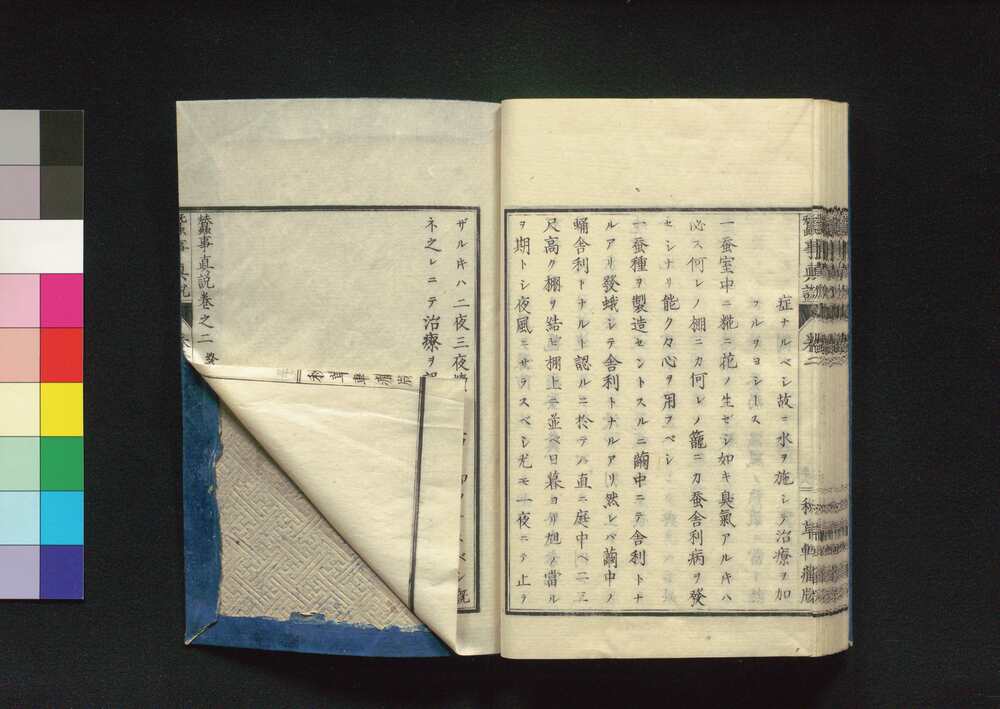 症ナルベシ故ニ水ヲ施シテ治療ヲ加
フルヲヨシトス
一蚕室中ニ糀ニ花ノ生ゼシ如キ臭氣アルキハ
必ス何レノ棚ニカ何レノ籠ニカ蚕舎利病ヲ發
セシナリ能ク々心ヲ用フベシ
一蚕種ヲ製造セントスルニ繭中ニテ舎利トナ
ルアリ發蛾シテ舎利トナルアリ然レバ繭中ノ
蛹舎利トナルト認ルニ於テハ直ニ庭中ヘ二三
尺高ク棚ヲ結ビ棚上ニ並ベ日暮ヨリ旭ノ當ル
ヲ期トシ夜風ニサラスベシ尤モ一夜ニテ止ラ
ザルキハ二夜三夜
ネ之レニテ治療ヲ
蠶事直説巻之二